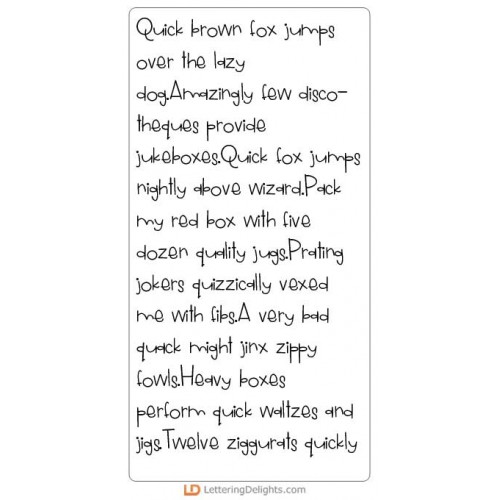 Quick brown fox jumps
over the lazy
dog.Amazingly few disco-
theques provide
jukeboxes.Quick fox jumps
nightly above wizard.Pack
my red box with five
dozen quality jugs.Prating
jokers quizzically vexed
me with fibs.A very bad
quack might jinx zippy
fowls.Heavy boxes
perform quick waltzes and
jigs.Twelve ziggurats quickly
LD LetteringDelights.com